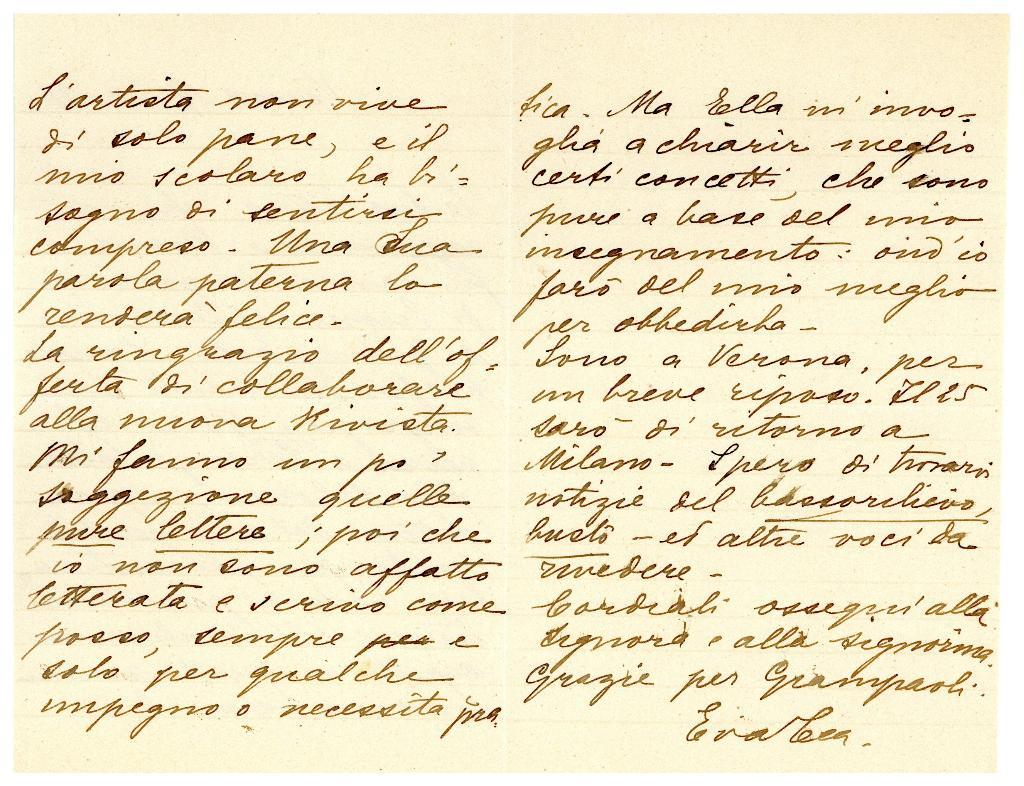 L'artista non vive
di solo pane, e il
mio scolaro ha bi=
sogno di sentirsi
compreso. Una Sua
parola paterna lo
renderà felice.
La ringrazio dell'of=
ferta di collaborare
alla nuova Rivista.
Mi fanno un po'
soggezione quelle
pure lettere; poi che
io non sono affatto
letterata e scrivo come
posso, sempre per e
solo per qualche
impegno o necessità pra
tica. Ma Ella m'invo=
glia a chiarir meglio
certi concetti, che sono
pure a base del mio
insegnamento: ond'io
farò del mio meglio
per obbedirla -
Sono a Verona, per
un breve riposo. Il 25
sarò di ritorno a
Milano - Spero di trovarvi
notizie del bassorilievo,
busto - ed altre voci da
rivedere -
Cordiali ossequi alla
Signora e alla signorina.
Grazie per Giampaoli.
Eva Tea.